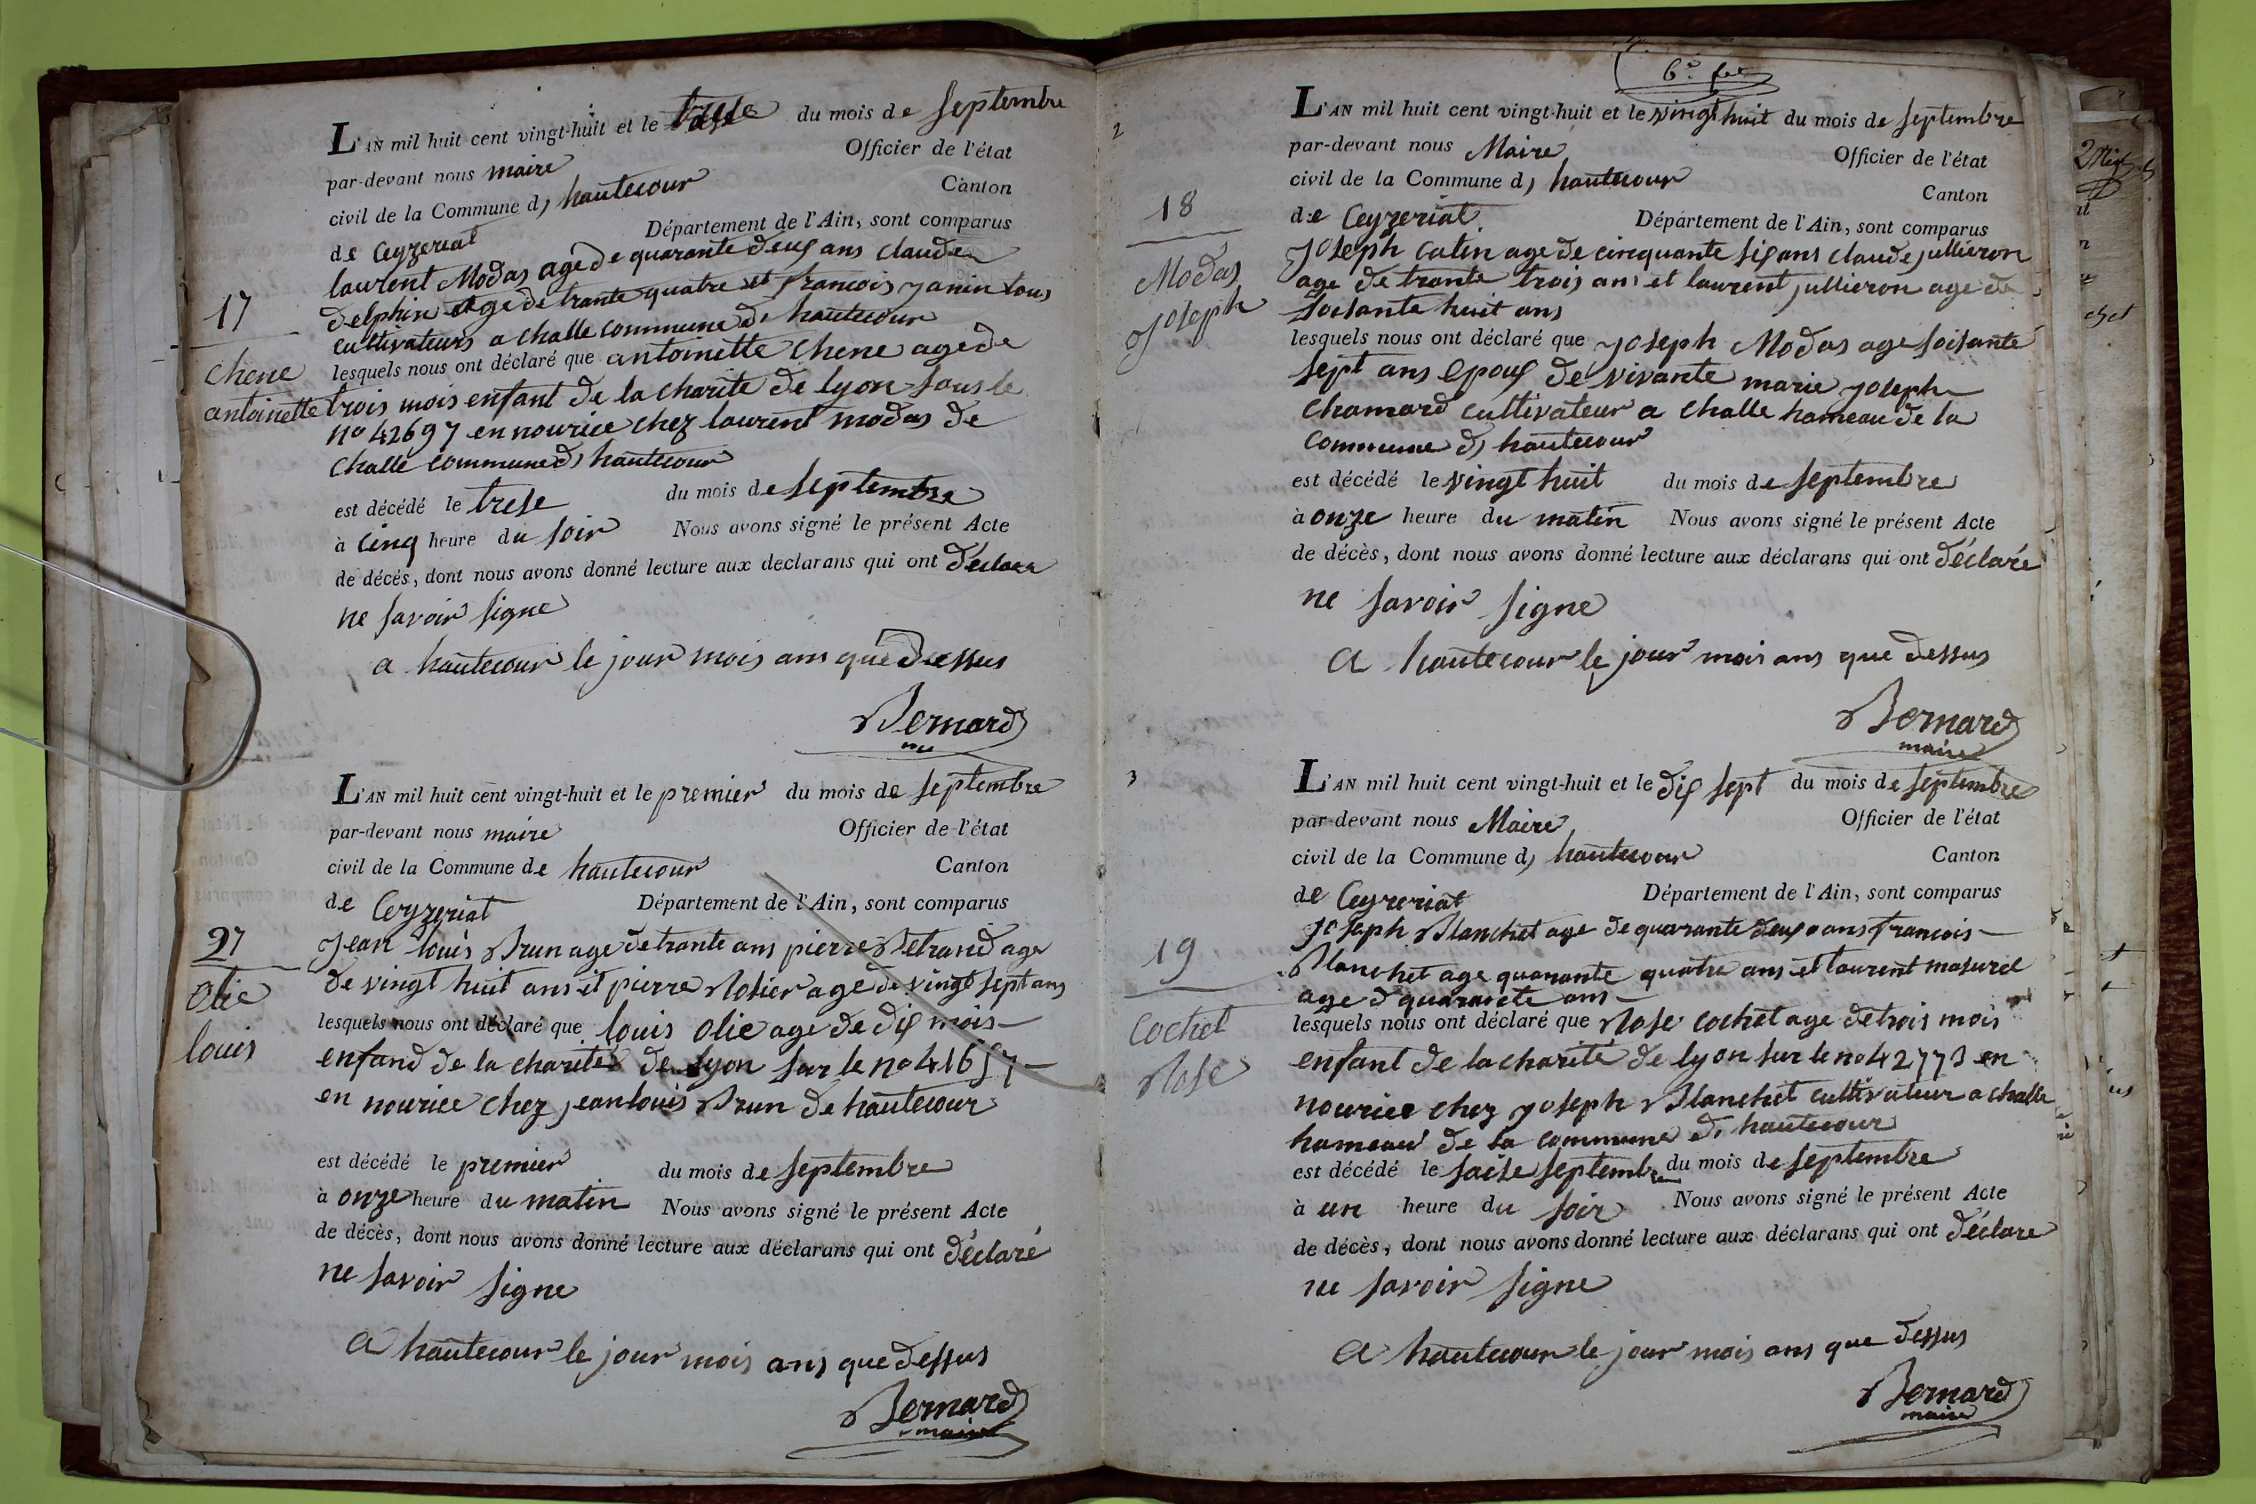 L'AN mil huit cent vingt-huit et le trese du mois de septembre
par-devant nous maire Officier de l'état
civil de la Commune d, hautecour Canton
de Ceyzeriat Département de l'Ain, sont comparus
laurent Modas age de quarante deux ans claude
17
delphin age de trante quatre et francois janin tous
cultivateurs a challe commune d, hautecour
chene
antoinette
lesquels nous ont déclaré que antoinette chene age de
trois mois enfant de la charite de lyon sous le
no 42697 en nourice chez laurent modas de
challe commune d, hautecour
est décédé le trese du mois de septembre
à cinq heure du soir Nous avons signé le présent Acte
de décès, dont nous avons donné lecture aux declarans qui ont déclare
ne savoir signe
a hautecour le jour mois ans que dessus
Bernard
L'AN mil huit cent vingt-huit et le premier du mois de septembre
par-devant nous maire Officier de l'état
civil de la Commune de hautecour Canton
de Ceyzeriat Département de l'Ain, sont comparus
27
olie
louis
jean louis Brun age de trante ans pierre Betrand age
de vingt huit ans et pierre Rosier age de vingt sept ans
lesquels nous ont déclaré que louis olie age de dix mois
enfand de la charite de lyon sur le no 41657
en nourice chez jean louis Brun de hautecour
est décédé le premier du mois de septembre
à onze heure du matin Nous avons signé le présent Acte
de décès, dont nous avons donné lecture aux déclarans qui ont déclaré
ne savoir signe
a hautecour le jour mois ans que dessus
Bernard
maire
6e
2
L'AN mil huit cent vingt-huit et le vingt huit du mois de septembre
par-devant nous Maire Officier de l'état
civil de la Commune d, hautecour Canton
de Ceyzeriat Département de l'Ain, sont comparus
18
Modas
joseph
joseph catin age de cinquante six ans claude jullieron
age de trante trois ans et laurent jullieron age de
soisante huit ans
lesquels nous ont déclaré que joseph Modas age soisante
sept ans epoux de vivante marie joseph
chamard cultivateur a challe hameau de la
commune d, hautecour
est décédé le vingt huit du mois de septembre
à onze heure du matin Nous avons signé le présent Acte
de décès, dont nous avons donné lecture aux déclarans qui ont déclaré
ne savoir signe
a hautecour le jour mois ans que dessus
Bernard
maire
3
L'AN mil huit cent vingt-huit et le dix sept du mois de septembre
par-devant nous Maire Officier de l'état
civil de la Commune d, hautecour Canton
de Ceyzeriat Département de l'Ain, sont comparus
19
Cochet
Rose
joseph Blanchet age de quarante deux ans francois
Blanchet age quarante quatre ans et laurent masurel
age d quarante ans
lesquels nous ont déclaré que Rose cochet age de trois mois
enfant de la charité de lyon sur le no 42773 en
nourice chez joseph Blanchet cultivateur a challe
hameau de la commune d, hautecour
est décédé le saise septembre du mois de septembre
à un heure du soir Nous avons signé le présent Acte
de décès, dont nous avons donné lecture aux déclarans qui ont déclare
ne savoir signe
a hautecour le jour mois ans que dessus
Bernard
maire